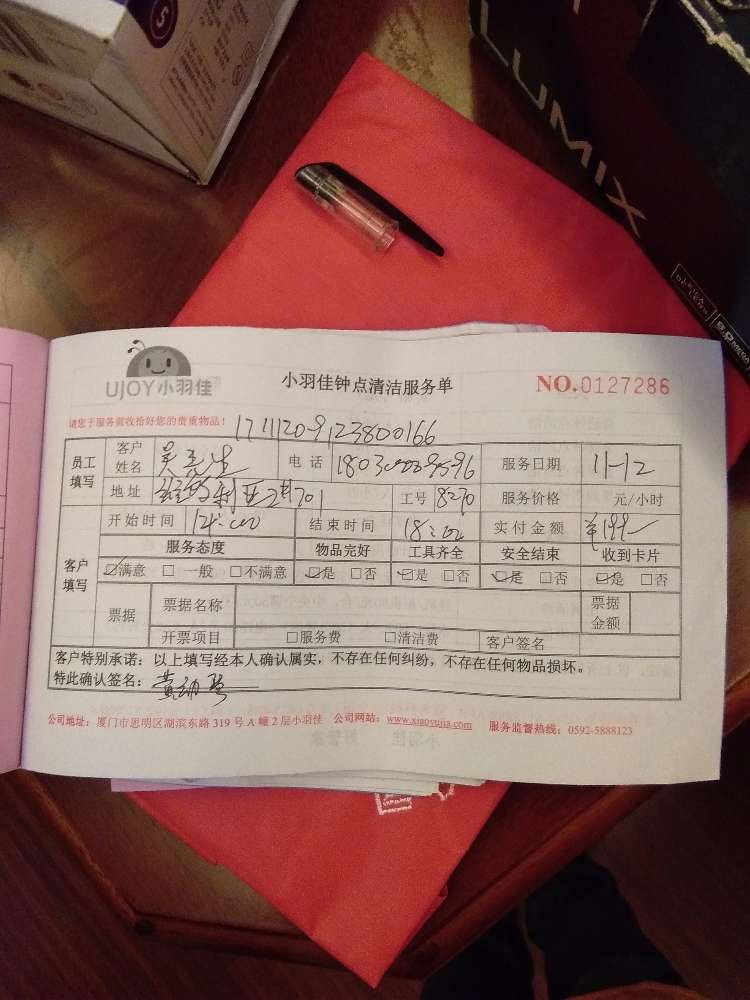 5
LUMIX
UJOY小羽佳
小羽佳钟点清洁服务单
NO.0127286
请您于服务前收拾好您的贵重物品！
1711209123800166
员工填写 客户姓名 吴先生 电话 服务日期 11-12
地址 维多利亚 701 工号 8270 服务价格 元/小时
客户填写 开始时间 14:00 结束时间 18:00 实付金额 ¥199
服务态度 物品完好 工具齐全 安全结束 收到卡片
☑满意 □一般 □不满意 ☑是 □否 ☑是 □否 ☑是 □否 ☑是 □否
票据 票据名称 票据金额
开票项目 □服务费 □清洁费 客户签名
客户特别承诺：以上填写经本人确认属实，不存在任何纠纷，不存在任何物品损坏。
特此确认签名：
公司地址：厦门市思明区湖滨东路 319 号 A 幢 2 层小羽佳 公司网站：www.xiaoyujia.com 服务监督热线：0592-5888123